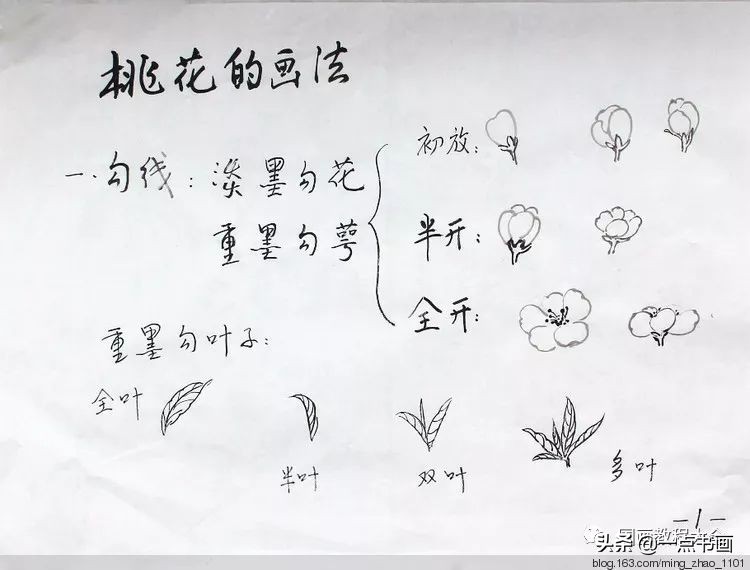 桃花的画法
一.勾线：淡墨勾花
重墨勾萼
初放：
半开：
全开：
重墨勾叶子：
全叶
半叶
双叶
多叶
-1-
国画教程大全
头条@一点书画
blog.163.com/ming_zhao_1101